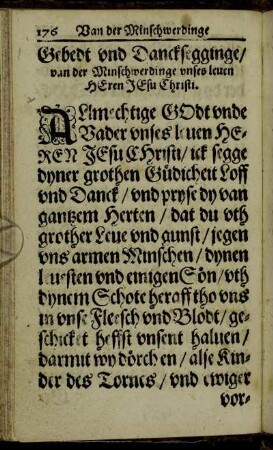 176 Van der Minschwerdinge
Gebedt vnd Dancksegginge/
van der Minschwerdinge vnses leuen
HEren JEsu Christi.
ALmechtige GOdt vnde
Vader vnses leuen HE-
REN JESu CHristi/ ick segge
dyner grothen Güdicheit Loff
vnd Danck/ vnd pryse dy van
gantzem Herten/ dat du vth
grother Leue vnd gunst/ jegen
vns armen Minschen/ dynen
leuesten vnd einigen Sön/ vth
dynem Schote heraff tho vns
in vnse Fleesch vnd Blödt/ ge-
schicket heffst vnsent haluen/
darmit wy dörch en/ alse Kin-
der des Tornes/ vnd ewiger
vor-